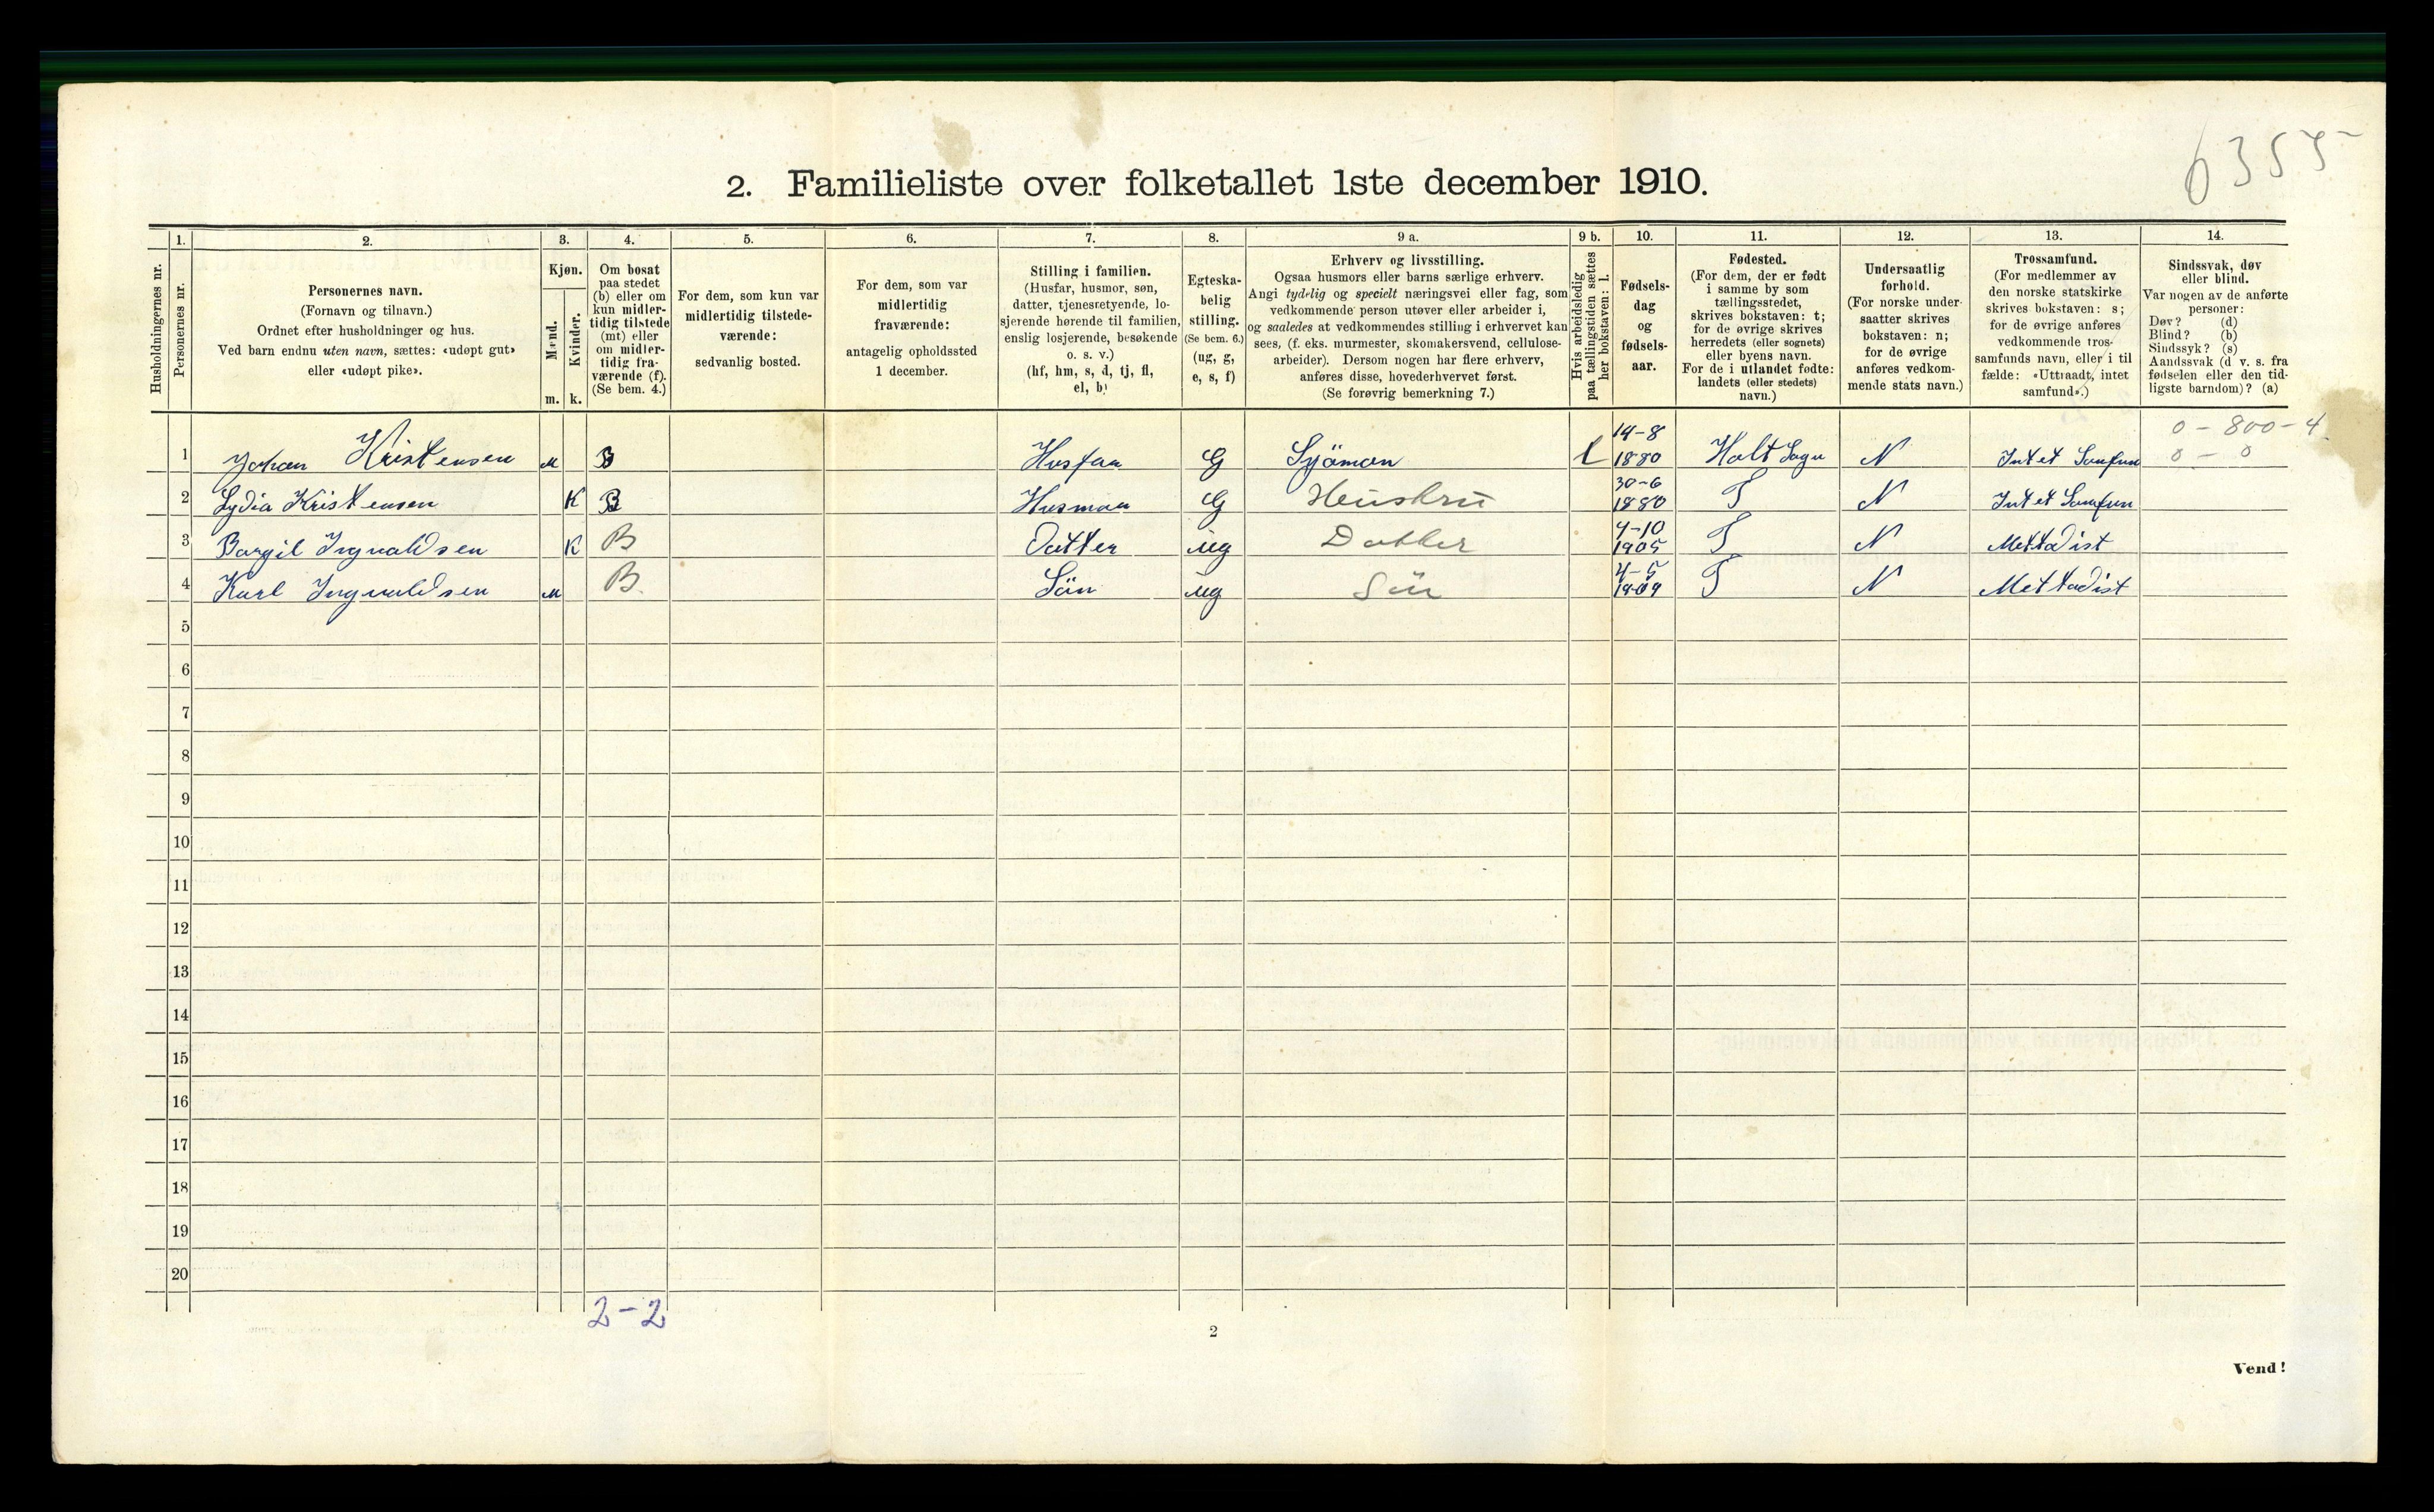 6355
2. Familieliste over folketallet 1ste december 1910.
Husholdningernes nr.
1. Personernes nr.
2. Personernes navn.
(Fornavn og tilnavn.)
Ordnet efter husholdninger og hus.
Ved barn endnu uten navn, sættes: «udøpt gut»
eller «udøpt pike».
3. Kjøn.
Mænd. m.
Kvinder. k.
4. Om bosat
paa stedet
(b) eller om
kun midler-
tidig tilstede
(mt) eller
om midler-
tidig fra-
værende (f).
(Se bem. 4.)
5. For dem, som kun var
midlertidig tilstede-
værende:
sedvanlig bosted.
6. For dem, som var
midlertidig
fraværende:
antagelig opholdssted
1 december.
7. Stilling i familien.
(Husfar, husmor, søn,
datter, tjenestetyende, lo-
sjerende hørende til familien,
enslig losjerende, besøkende
o. s. v.)
(hf, hm, s, d, tj, fl,
el, b)
8. Egteska-
belig
stilling.
(Se bem. 6.)
(ug, g,
e, s, f)
9 a. Erhverv og livsstilling.
Ogsaa husmors eller barns særlige erhverv.
Angi tydelig og specielt næringsvei eller fag, som
vedkommende person utøver eller arbeider i,
og saaledes at vedkommendes stilling i erhvervet kan
sees, (f. eks. murmester, skomakersvend, cellulose-
arbeider). Dersom nogen har flere erhverv,
anføres disse, hovederhvervet først.
(Se forøvrig bemerkning 7.)
9 b. Hvis arbeidsledig
paa tællingstiden sættes
her bokstaven: l.
10. Fødsels-
dag
og
fødsels-
aar.
11. Fødested.
(For dem, der er født
i samme by som
tællingsstedet,
skrives bokstaven: t;
for de øvrige skrives
herredets (eller sognets)
eller byens navn.
For de i utlandet fødte:
landets (eller stedets)
navn.)
12. Undersaatlig
forhold.
(For norske under-
saatter skrives
bokstaven: n;
for de øvrige
anføres vedkom-
mende stats navn.)
13. Trossamfund.
(For medlemmer av
den norske statskirke
skrives bokstaven: s;
for de øvrige anføres
vedkommende tros-
samfunds navn, eller i til
fælde: «Uttraadt, intet
samfund».)
14. Sindssvak, døv
eller blind.
Var nogen av de anførte
personer:
Døv? (d)
Blind? (b)
Sindssyk? (s)
Aandssvak (d v. s. fra
fødselen eller den tid-
ligste barndom)? (a)
1 Johan Kristensen M B Husfaa G Sjöman l 14-8 1880 Holt Sogn N Intet Samfun 0 - 800 - 4 0 - 0
2 Lydia Kristensen K B Husmoa G Hustru 30-6 1880 T N Intet Samfun
3 Borgil Ingvaldsen K B Datter ug Datter 4-10 1905 T N Mettadist
4 Karl Ingvaldsen M B. Sön ug Sön 4-5 1909 T N Mettadist
5
6
7
8
9
10
11
12
13
14
15
16
17
18
19
20
2-2
2
Vend!